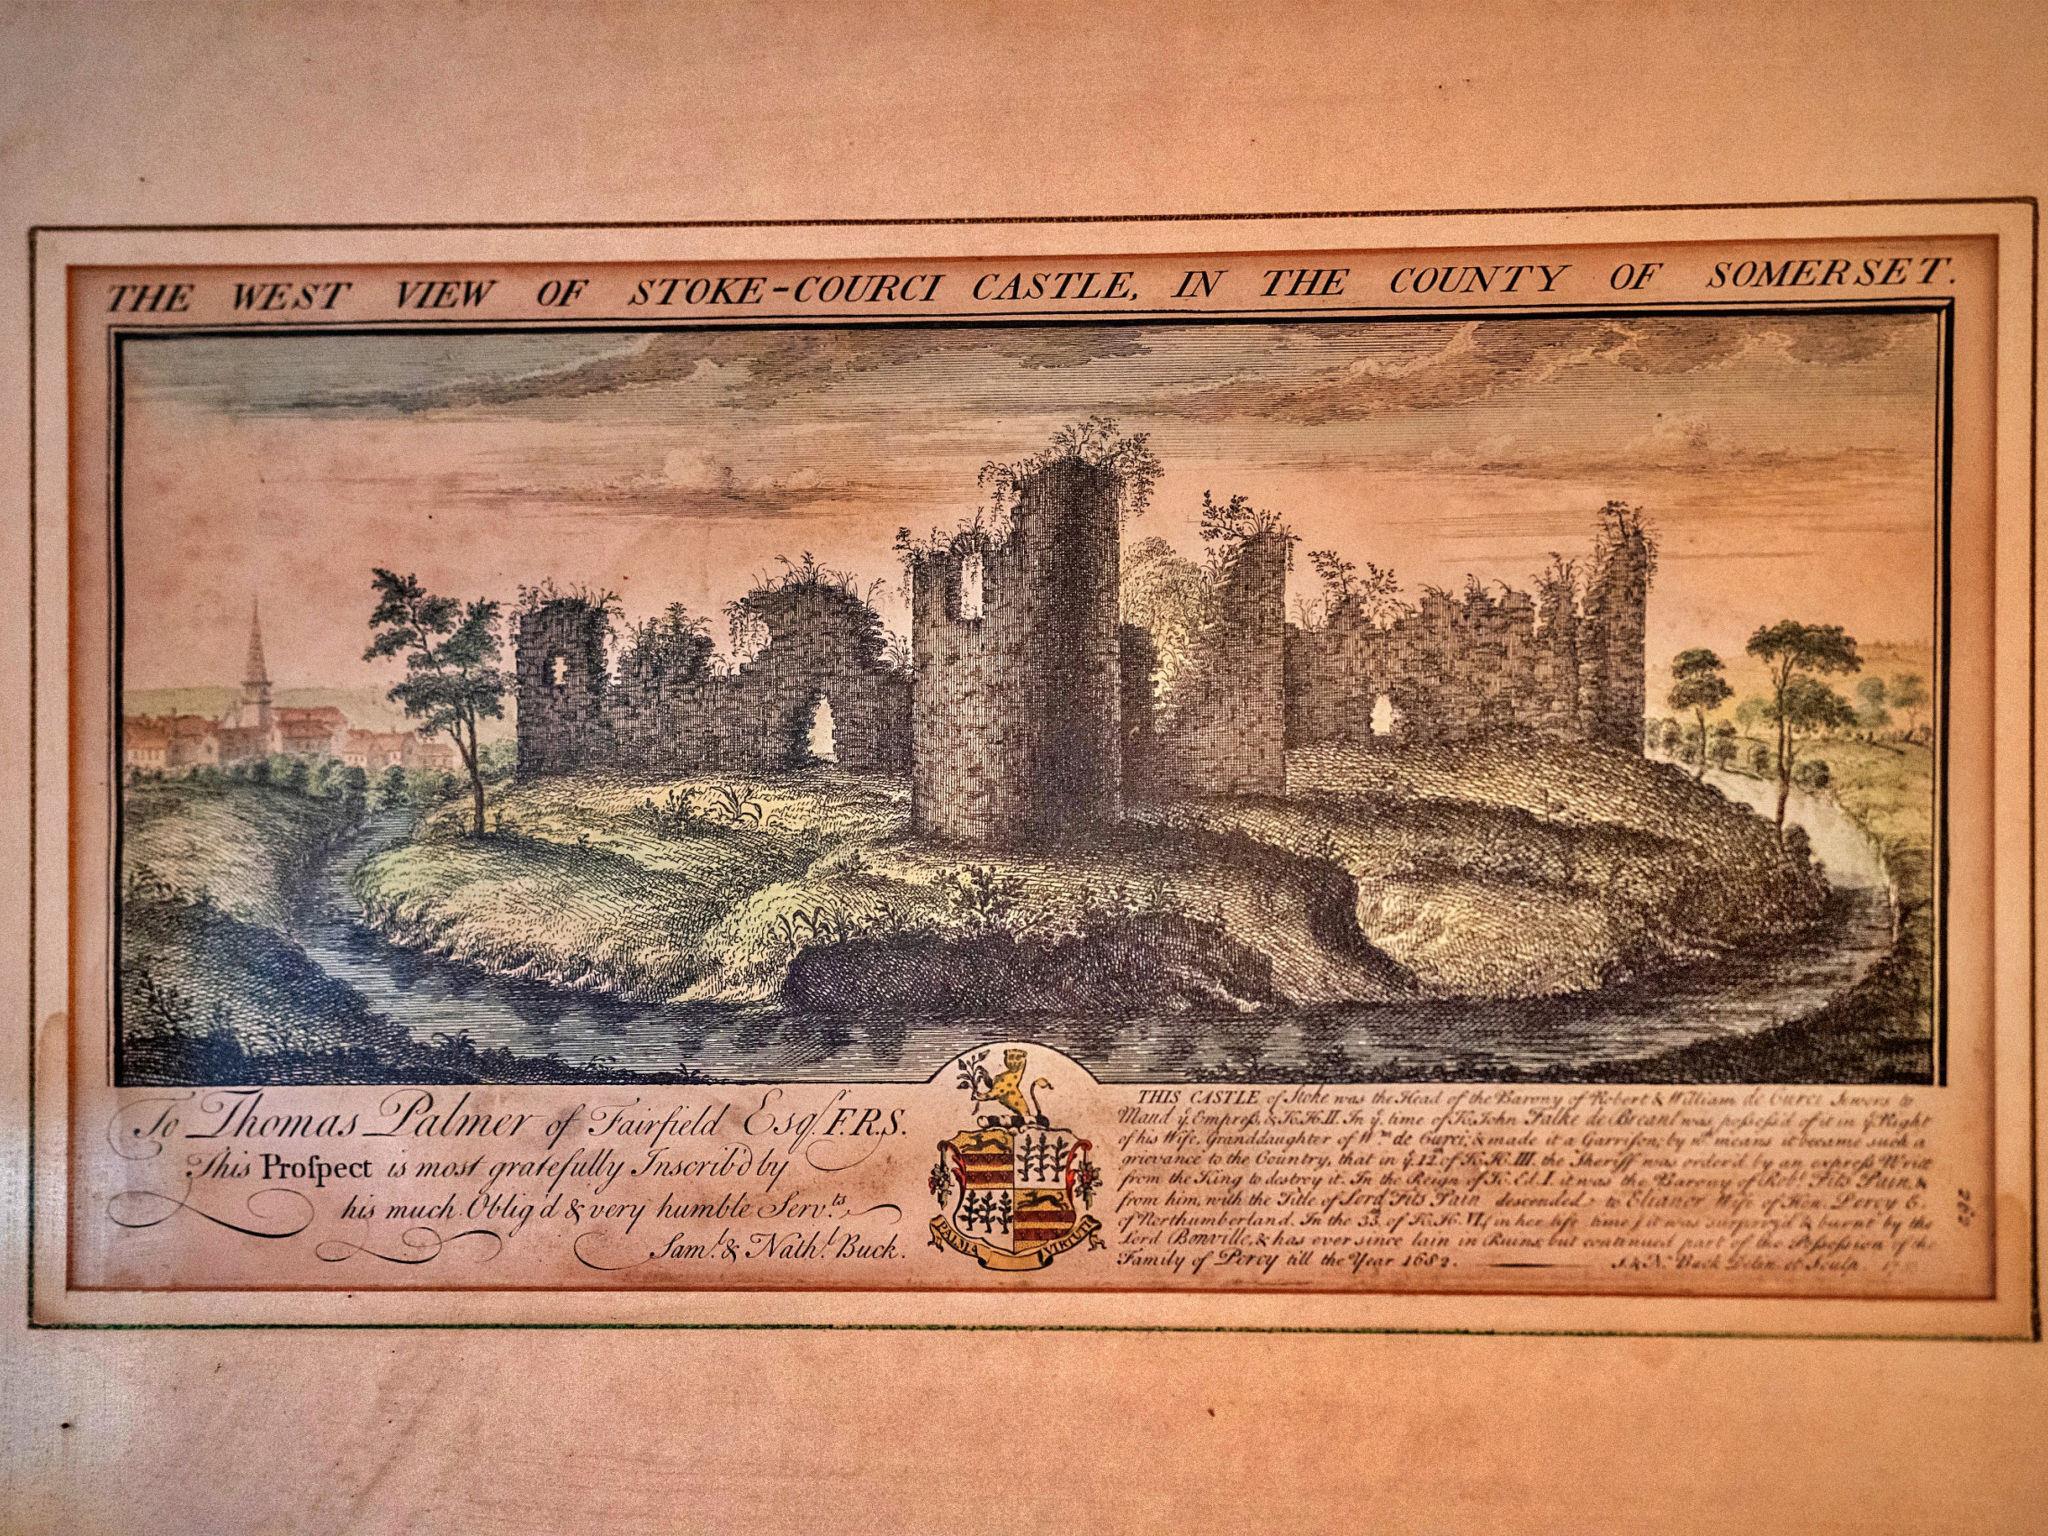 THE WEST VIEW OF STOKE-COURCI CASTLE, IN THE COUNTY OF SOMERSET.
To Thomas Palmer of Fairfield Esqr. F.R.S.
This Proſpect is most gratefully Inscrib'd by
his much Oblig'd & very humble Servts.
Saml. & Nathl. Buck.
PALMA VIRTUTI
THIS CASTLE of Stoke was the Head of the Barony of Robert & William de Curci Sewers to
Maud ye. Empreſs, & K. H. II. In ye. time of K. John Falke de Breant was poſseſs'd of it in ye. Right
of his Wife, Granddaughter of Wm. de Curci, & made it a Garriſon; by wch. means it became such a
grievance to the Country, that in ye. 12th. of K. H. III. the Sheriff was order'd by an expreſs Writt
from the King to destroy it. In the Reign of K. Ed. I. it was the Barony of Robt. Fits Pain, &
from him, with the Title of Lord Fits Pain descended to Elianor Wife of Hen. Percy E.
of Northumberland. In the 33d. of K. H. VI. (in her life time) it was surpriz'd & burnt by the
Lord Bonville, & has ever since lain in Ruins, but continued part of the Poſseſsion of the
Family of Percy till the Year 1682. S. & N. Buck Delin. et Sculp. 17